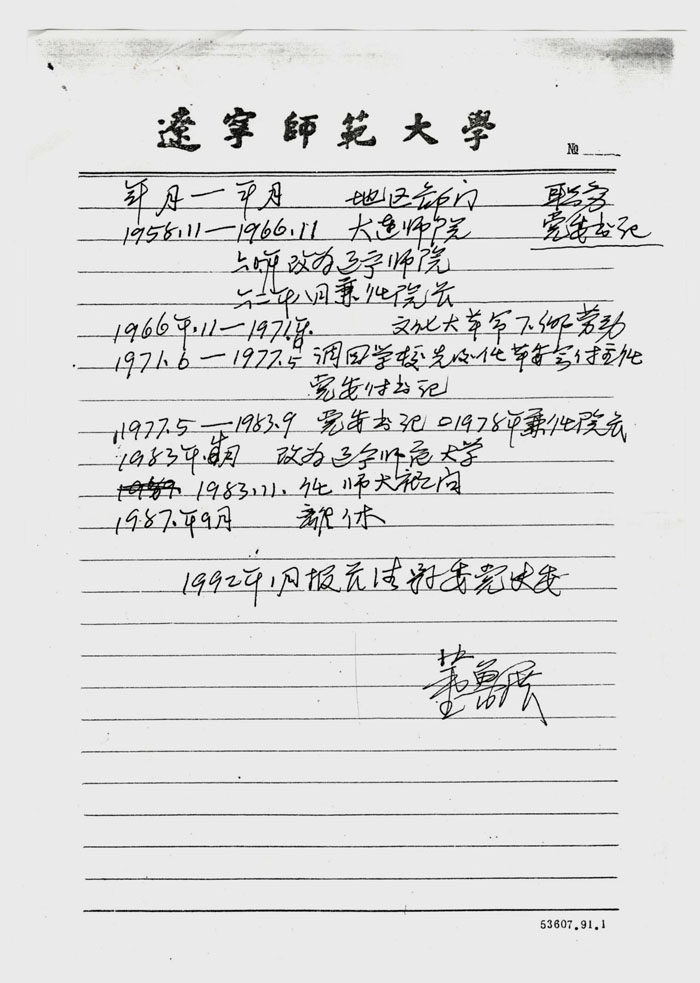 遼寧師範大學
№
年月—年月 地区部门 职务
1958.11—1966.11 大连师院 党委书记
六〇年改为辽宁师院
六二年八月兼任院长
1966年.11—1971年. 文化大革命下乡劳动
1971.6—1977.5 调回学校先后任革委会付主任
党委付书记
1977.5—1983.9 党委书记 1978年兼任院长
1983年 月 改为辽宁师范大学
1983.11. 任师大顾问
1987.年9月 离休
1992年1月报 党史委
董勇
53607.91.1